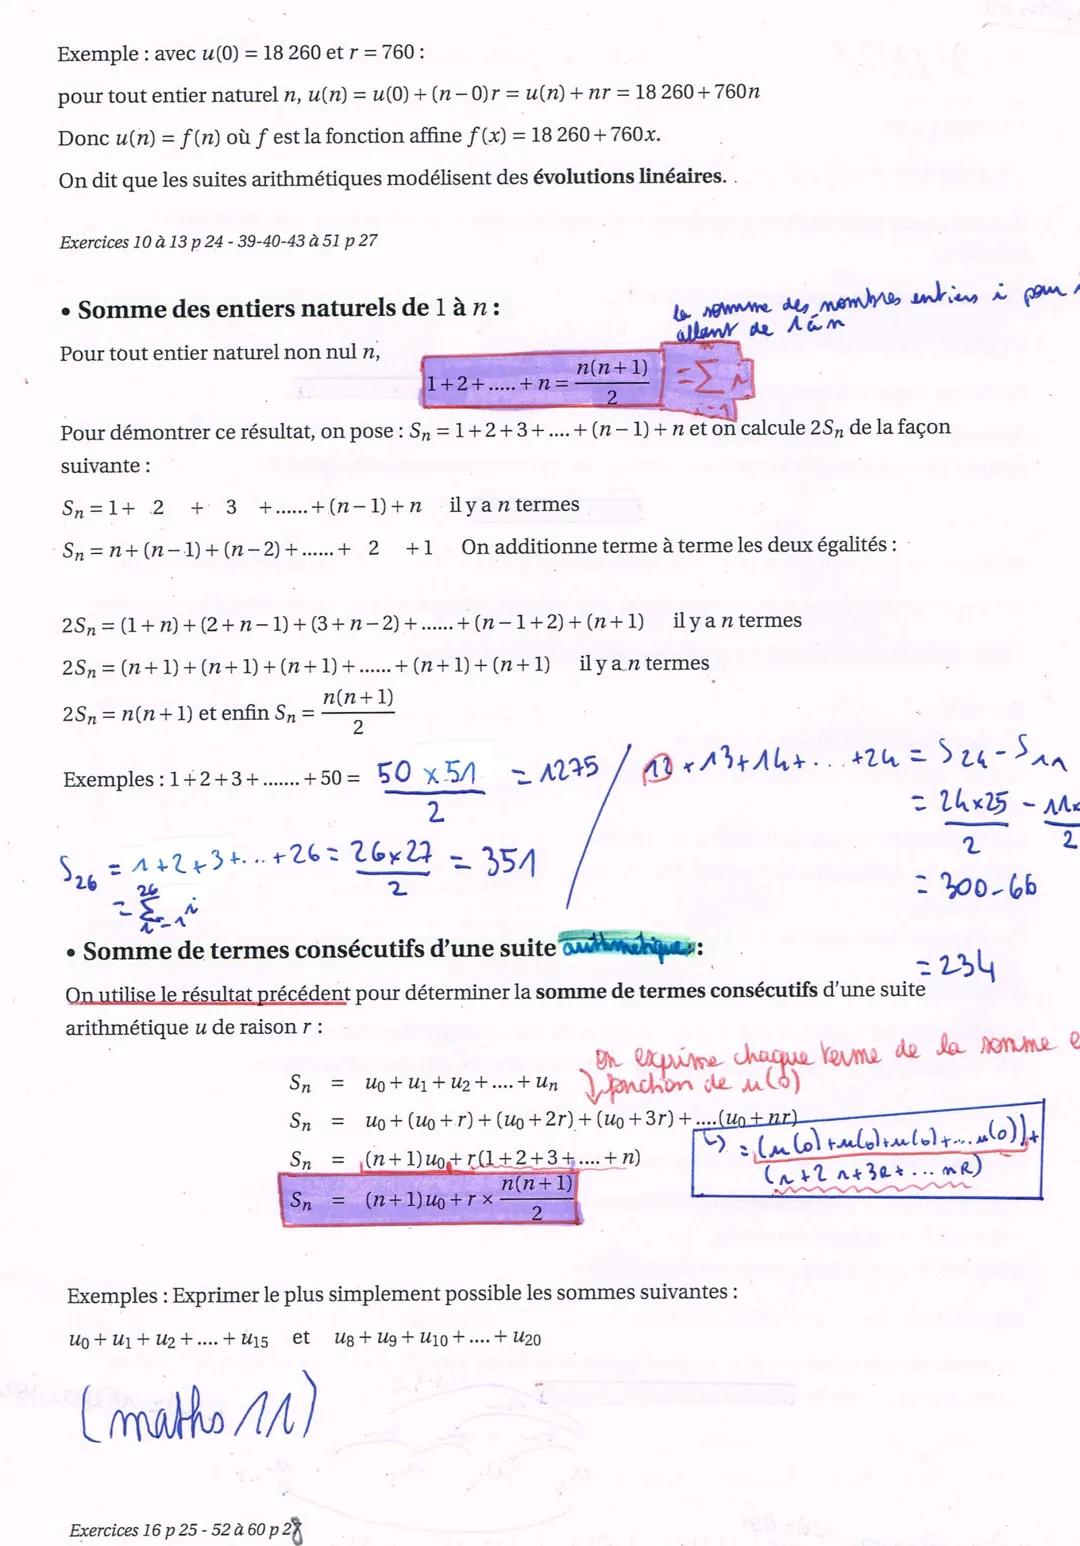 Exemple : avec u(0) = 18 260 et r = 760 :
pour tout entier naturel n, u(n) = u(0) + (n − 0)r = u(n) + nr = 18 260 + 760n
Donc u(n) = f(n) où f est la fonction affine f(x) = 18 260 + 760x.
On dit que les suites arithmétiques modélisent des évolutions linéaires. .
Exercices 10 à 13 p 24 - 39-40-43 à 51 p 27
• Somme des entiers naturels de 1 à n :
la somme des nombres entiers i pour
allant de 1 à n
Pour tout entier naturel non nul n,
1 + 2 + ..... + n = n(n+1)/2 = ∑ i n i=1
Pour démontrer ce résultat, on pose : Sn = 1 + 2 + 3 + .... + (n − 1) + n et on calcule 2Sn de la façon
suivante :
Sn = 1 + 2 + 3 + ...... + (n − 1) + n il y a n termes
Sn = n + (n − 1) + (n − 2) + ...... + 2 + 1 On additionne terme à terme les deux égalités :
2Sn = (1 + n) + (2 + n − 1) + (3 + n − 2) + ...... + (n − 1 + 2) + (n + 1) il y a n termes
2Sn = (n + 1) + (n + 1) + (n + 1) + ...... + (n + 1) + (n + 1) il y a n termes
2Sn = n(n + 1) et enfin Sn = n(n+1)/2
Exemples : 1 + 2 + 3 + ....... + 50 = 50 × 51 / 2 = 1275
12 + 13 + 14 + ... + 24 = S24 - S11
= 24×25/2 - 11×/2
= 300 - 66
= 234
S26 = 1 + 2 + 3 + ... + 26 = 26×27/2 = 351
= 26 ∑ i i=1
• Somme de termes consécutifs d'une suite arithmétique :
On utilise le résultat précédent pour déterminer la somme de termes consécutifs d'une suite
arithmétique u de raison r :
On exprime chaque terme de la somme e
fonction de u(0)
Sn = u0 + u1 + u2 + .... + un
Sn = u0 + (u0 + r) + (u0 + 2r) + (u0 + 3r) + ....(u0 + nr)
↳ = (u(0) + u(0) + u(0) + ... u(0)) +
(r + 2r + 3r + ... nR)
Sn = (n + 1)u0 + r(1 + 2 + 3 + .... + n)
Sn = (n + 1)u0 + r × n(n+1)/2
Exemples : Exprimer le plus simplement possible les sommes suivantes :
u0 + u1 + u2 + .... + u15 et u8 + u9 + u10 + .... + u20
(maths 11)
Exercices 16 p 25 - 52 à 60 p 28